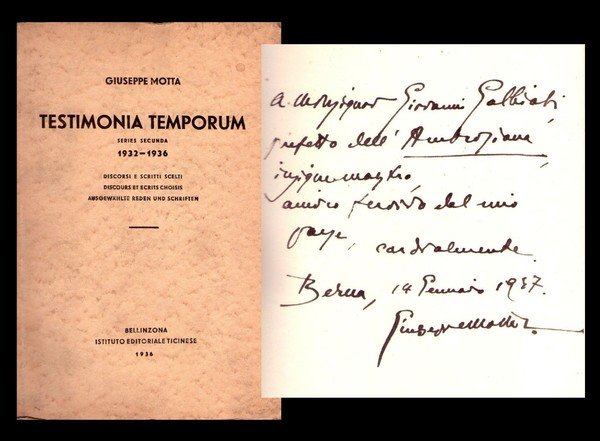 GIUSEPPE MOTTA
TESTIMONIA TEMPORUM
SERIES SECUNDA
1932-1936
DISCORSI E SCRITTI SCELTI
DISCOURS ET ECRITS CHOISIS
AUSGEWÄHLTE REDEN UND SCHRIFTEN
BELLINZONA
ISTITUTO EDITORIALE TICINESE
1936
a Monsignor Giovanni Galbiati,
prefetto dell'Ambrosiana,
insigne maestro,
amico fervido del mio
paese, cordialmente.
Berna, 14 Gennaio 1937.
Giuseppe Motta.